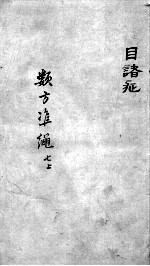 目諸症
類方準繩 七上